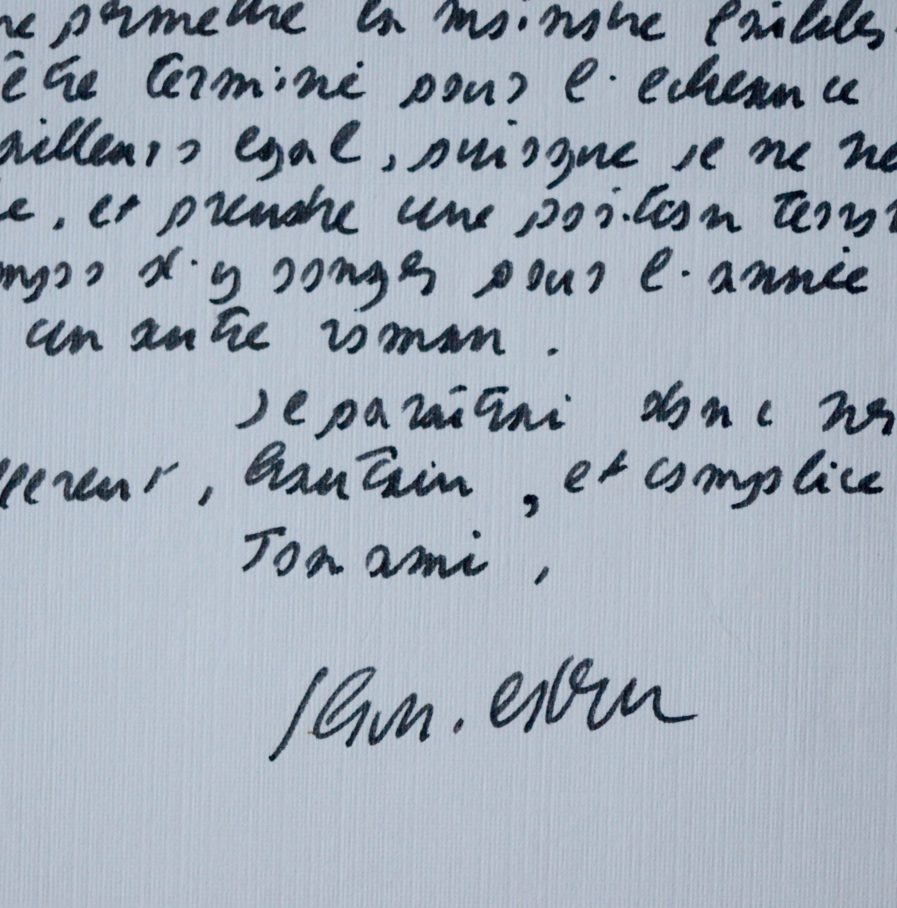 me permettre la moindre faibles
être terminé pour l'echeance
ailleurs egal, puisque je ne me
le, et prendre une position terr
mps d'y songer pour l'année
un autre roman.
Je paraîtrai donc
fferent, hautain, et complice
Ton ami,
Jean.